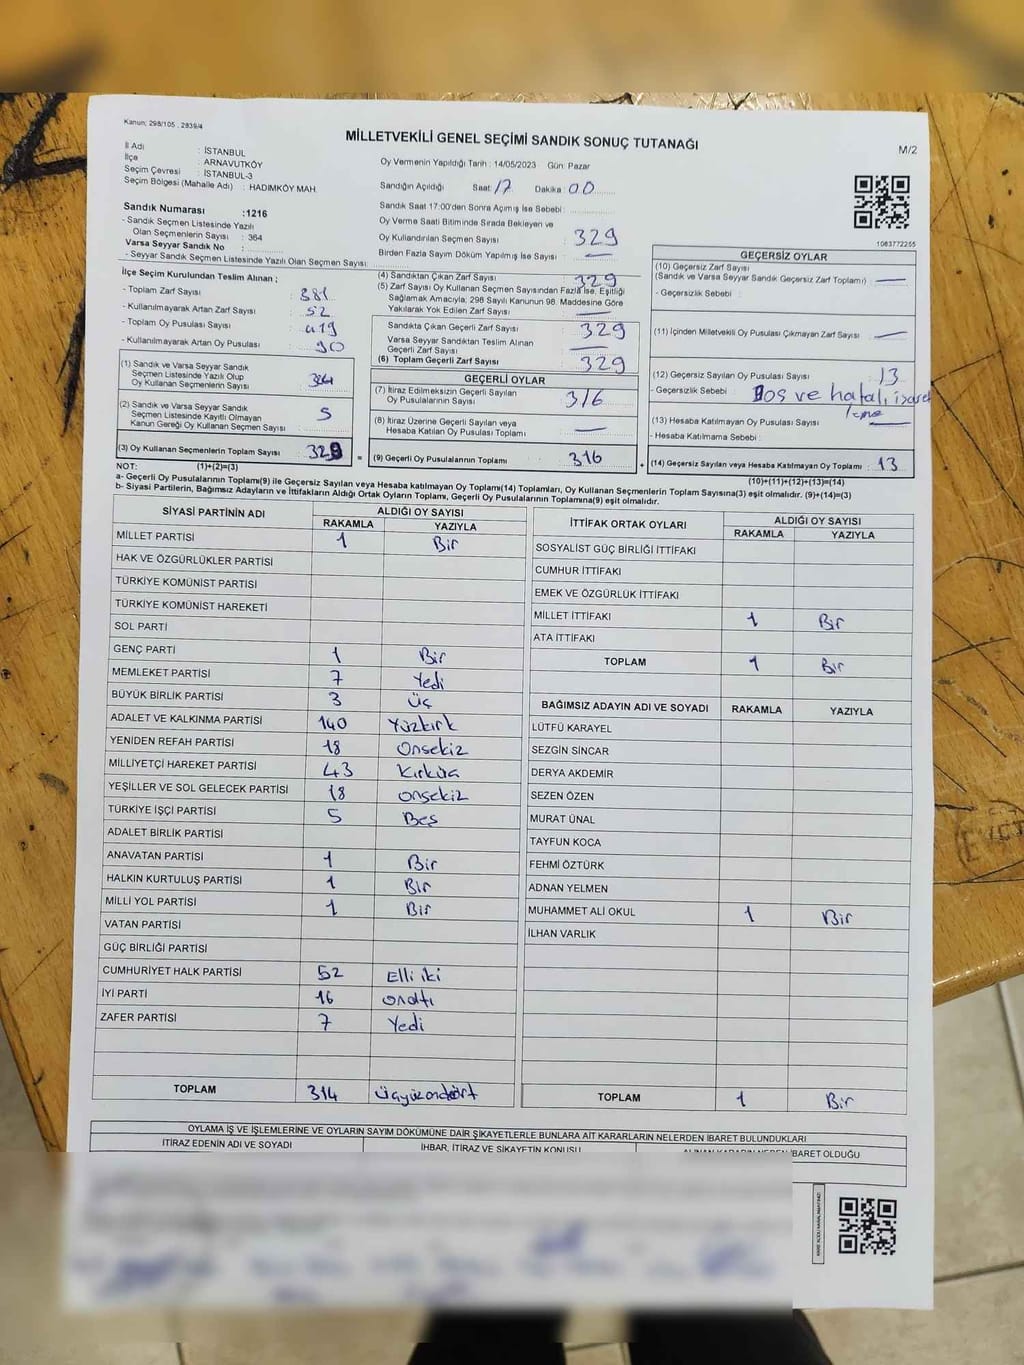 Kanun; 298/105 , 2839/4
MİLLETVEKİLİ GENEL SEÇİMİ SANDIK SONUÇ TUTANAĞI
M/2
İl Adı : İSTANBUL
İlçe : ARNAVUTKÖY
Seçim Çevresi : İSTANBUL-3
Seçim Bölgesi (Mahalle Adı) : HADIMKÖY MAH.
Oy Vermenin Yapıldığı Tarih : 14/05/2023 Gün: Pazar
Sandığın Açıldığı Saat: 17 Dakika : 00
Sandık Saat 17:00'den Sonra Açımış İse Sebebi :
Oy Verme Saati Bitiminde Sırada Bekleyen ve
Oy Kullandırılan Seçmen Sayısı : 329
Birden Fazla Sayım Döküm Yapılmış İse Sayısı : —
Sandık Numarası :1216
- Sandık Seçmen Listesinde Yazılı
Olan Seçmenlerin Sayısı : 364
Varsa Seyyar Sandık No :
- Seyyar Sandık Seçmen Listesinde Yazılı Olan Seçmen Sayısı:
1083772255
İlçe Seçim Kurulundan Teslim Alınan ;
- Toplam Zarf Sayısı : 381
- Kullanılmayarak Artan Zarf Sayısı : 52
- Toplam Oy Pusulası Sayısı : 419
- Kullanılmayarak Artan Oy Pusulası : 90
(1) Sandık ve Varsa Seyyar Sandık
Seçmen Listesinde Yazılı Olup
Oy Kullanan Seçmenlerin Sayısı 324
(2) Sandık ve Varsa Seyyar Sandık
Seçmen Listesinde Kayıtlı Olmayan
Kanun Gereği Oy Kullanan Seçmen Sayısı : 5
(3) Oy Kullanan Seçmenlerin Toplam Sayısı 329
(4) Sandıktan Çıkan Zarf Sayısı : 329
(5) Zarf Sayısı Oy Kullanan Seçmen Sayısından Fazla İse, Eşitliği
Sağlamak Amacıyla, 298 Sayılı Kanunun 98. Maddesine Göre
Yakılarak Yok Edilen Zarf Sayısı : —
Sandıkta Çıkan Geçerli Zarf Sayısı : 329
Varsa Seyyar Sandıktan Teslim Alınan
Geçerli Zarf Sayısı : —
(6) Toplam Geçerli Zarf Sayısı : 329
GEÇERLİ OYLAR
(7) İtiraz Edilmeksizin Geçerli Sayılan
Oy Pusulalarının Sayısı : 316
(8) İtiraz Üzerine Geçerli Sayılan veya
Hesaba Katılan Oy Pusulası Toplamı : —
= (9) Geçerli Oy Pusulalarının Toplamı : 316
GEÇERSİZ OYLAR
(10) Geçersiz Zarf Sayısı
(Sandık ve Varsa Seyyar Sandık Geçersiz Zarf Toplamı) : —
- Geçersizlik Sebebi :
(11) İçinden Milletvekili Oy Pusulası Çıkmayan Zarf Sayısı : —
(12) Geçersiz Sayılan Oy Pusulası Sayısı : 13
- Geçersizlik Sebebi : Boş ve hatalı işaret
(13) Hesaba Katılmayan Oy Pusulası Sayısı : —
- Hesaba Katılmama Sebebi :
+ (14) Geçersiz Sayılan veya Hesaba Katılmayan Oy Toplamı : 13
NOT: (1)+(2)=(3)
(10)+(11)+(12)+(13)=(14)
a- Geçerli Oy Pusulalarının Toplamı(9) ile Geçersiz Sayılan veya Hesaba katılmayan Oy Toplamı(14) Toplamları, Oy Kullanan Seçmenlerin Toplam Sayısına(3) eşit olmalıdır. (9)+(14)=(3)
b- Siyasi Partilerin, Bağımsız Adayların ve İttifakların Aldığı Ortak Oyların Toplamı, Geçerli Oy Pusulalarının Toplamına(9) eşit olmalıdır.
SİYASİ PARTİNİN ADI ALDIĞI OY SAYISI
RAKAMLA YAZIYLA
MİLLET PARTİSİ 1 Bir
HAK VE ÖZGÜRLÜKLER PARTİSİ
TÜRKİYE KOMÜNİST PARTİSİ
TÜRKİYE KOMÜNİST HAREKETİ
SOL PARTİ
GENÇ PARTİ 1 Bir
MEMLEKET PARTİSİ 7 Yedi
BÜYÜK BİRLİK PARTİSİ 3 Üç
ADALET VE KALKINMA PARTİSİ 140 Yüzkırk
YENİDEN REFAH PARTİSİ 18 Onsekiz
MİLLİYETÇİ HAREKET PARTİSİ 43 Kırküç
YEŞİLLER VE SOL GELECEK PARTİSİ 18 onsekiz
TÜRKİYE İŞÇİ PARTİSİ 5 Beş
ADALET BİRLİK PARTİSİ
ANAVATAN PARTİSİ 1 Bir
HALKIN KURTULUŞ PARTİSİ 1 Bir
MİLLİ YOL PARTİSİ 1 Bir
VATAN PARTİSİ
GÜÇ BİRLİĞİ PARTİSİ
CUMHURİYET HALK PARTİSİ 52 Elli iki
İYİ PARTİ 16 onaltı
ZAFER PARTİSİ 7 Yedi
TOPLAM 314 üçyüzondört
İTTİFAK ORTAK OYLARI ALDIĞI OY SAYISI
RAKAMLA YAZIYLA
SOSYALİST GÜÇ BİRLİĞİ İTTİFAKI
CUMHUR İTTİFAKI
EMEK VE ÖZGÜRLÜK İTTİFAKI
MİLLET İTTİFAKI 1 Bir
ATA İTTİFAKI
TOPLAM 1 Bir
BAĞIMSIZ ADAYIN ADI VE SOYADI RAKAMLA YAZIYLA
LÜTFÜ KARAYEL
SEZGİN SİNCAR
DERYA AKDEMİR
SEZEN ÖZEN
MURAT ÜNAL
TAYFUN KOCA
FEHMİ ÖZTÜRK
ADNAN YELMEN
MUHAMMET ALİ OKUL 1 Bir
İLHAN VARLIK
TOPLAM 1 Bir
OYLAMA İŞ VE İŞLEMLERİNE VE OYLARIN SAYIM DÖKÜMÜNE DAİR ŞİKAYETLERLE BUNLARA AİT KARARLARIN NELERDEN İBARET BULUNDUKLARI
İTİRAZ EDENİN ADI VE SOYADI İHBAR, İTİRAZ VE ŞİKAYETİN KONUSU ALINAN KARARIN NEDEN İBARET OLDUĞU